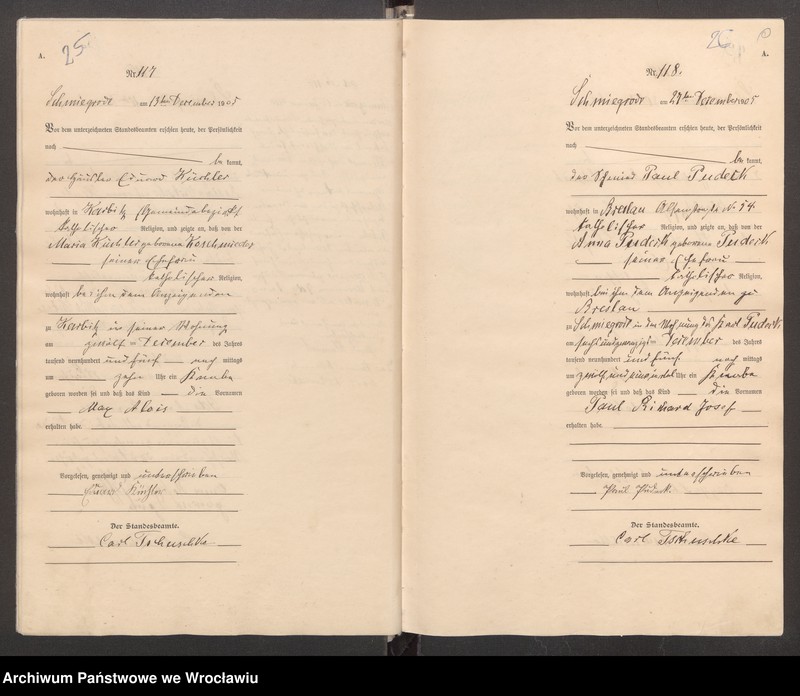 25
A.
Nr. 117
Schmiegrode am 13ten Dezember 1905
Vor dem unterzeichneten Standesbeamten erschien heute, der Persönlichkeit
nach
be kannt,
der Häusler Eduard Küchler
wohnhaft in Karbitz Gemeindebezirk
katholischer Religion, und zeigte an, daß von der
Maria Küchler geborene
seiner Ehefrau
katholischer Religion,
wohnhaft bei ihm dem Anzeigenden
zu Karbitz in seiner Wohnung
am zwölf ten Dezember des Jahres
tausend neunhundert und fünf nach mittags
um zehn Uhr ein Knabe
geboren worden sei und daß das Kind die Vornamen
Max Alois
erhalten habe
Vorgelesen, genehmigt und unterschrieben
Eduard Küchler
Der Standesbeamte.
Carl Tschuschke
26
A.
Nr. 118.
Schmiegrode am 27ten Dezember 1905
Vor dem unterzeichneten Standesbeamten erschien heute, der Persönlichkeit
nach
be kannt,
der Schmied Paul Pudeck
wohnhaft in Breslau No 54
katholischer Religion, und zeigte an, daß von der
Anna Pudeck geborene Pudeck
seiner Ehefrau
katholischer Religion,
wohnhaft bei ihm dem Anzeigenden zu
Breslau
zu Schmiegrode in der Wohnung des Pudeck
am sechsundzwanzigs ten Dezember des Jahres
tausend neunhundert und fünf nach mittags
um zwölf und Uhr ein Knabe
geboren worden sei und daß das Kind die Vornamen
Paul Richard Josef
erhalten habe
Vorgelesen, genehmigt und unterschrieben
Paul Pudeck.
Der Standesbeamte.
Carl Tschuschke
Archiwum Państwowe we Wrocławiu